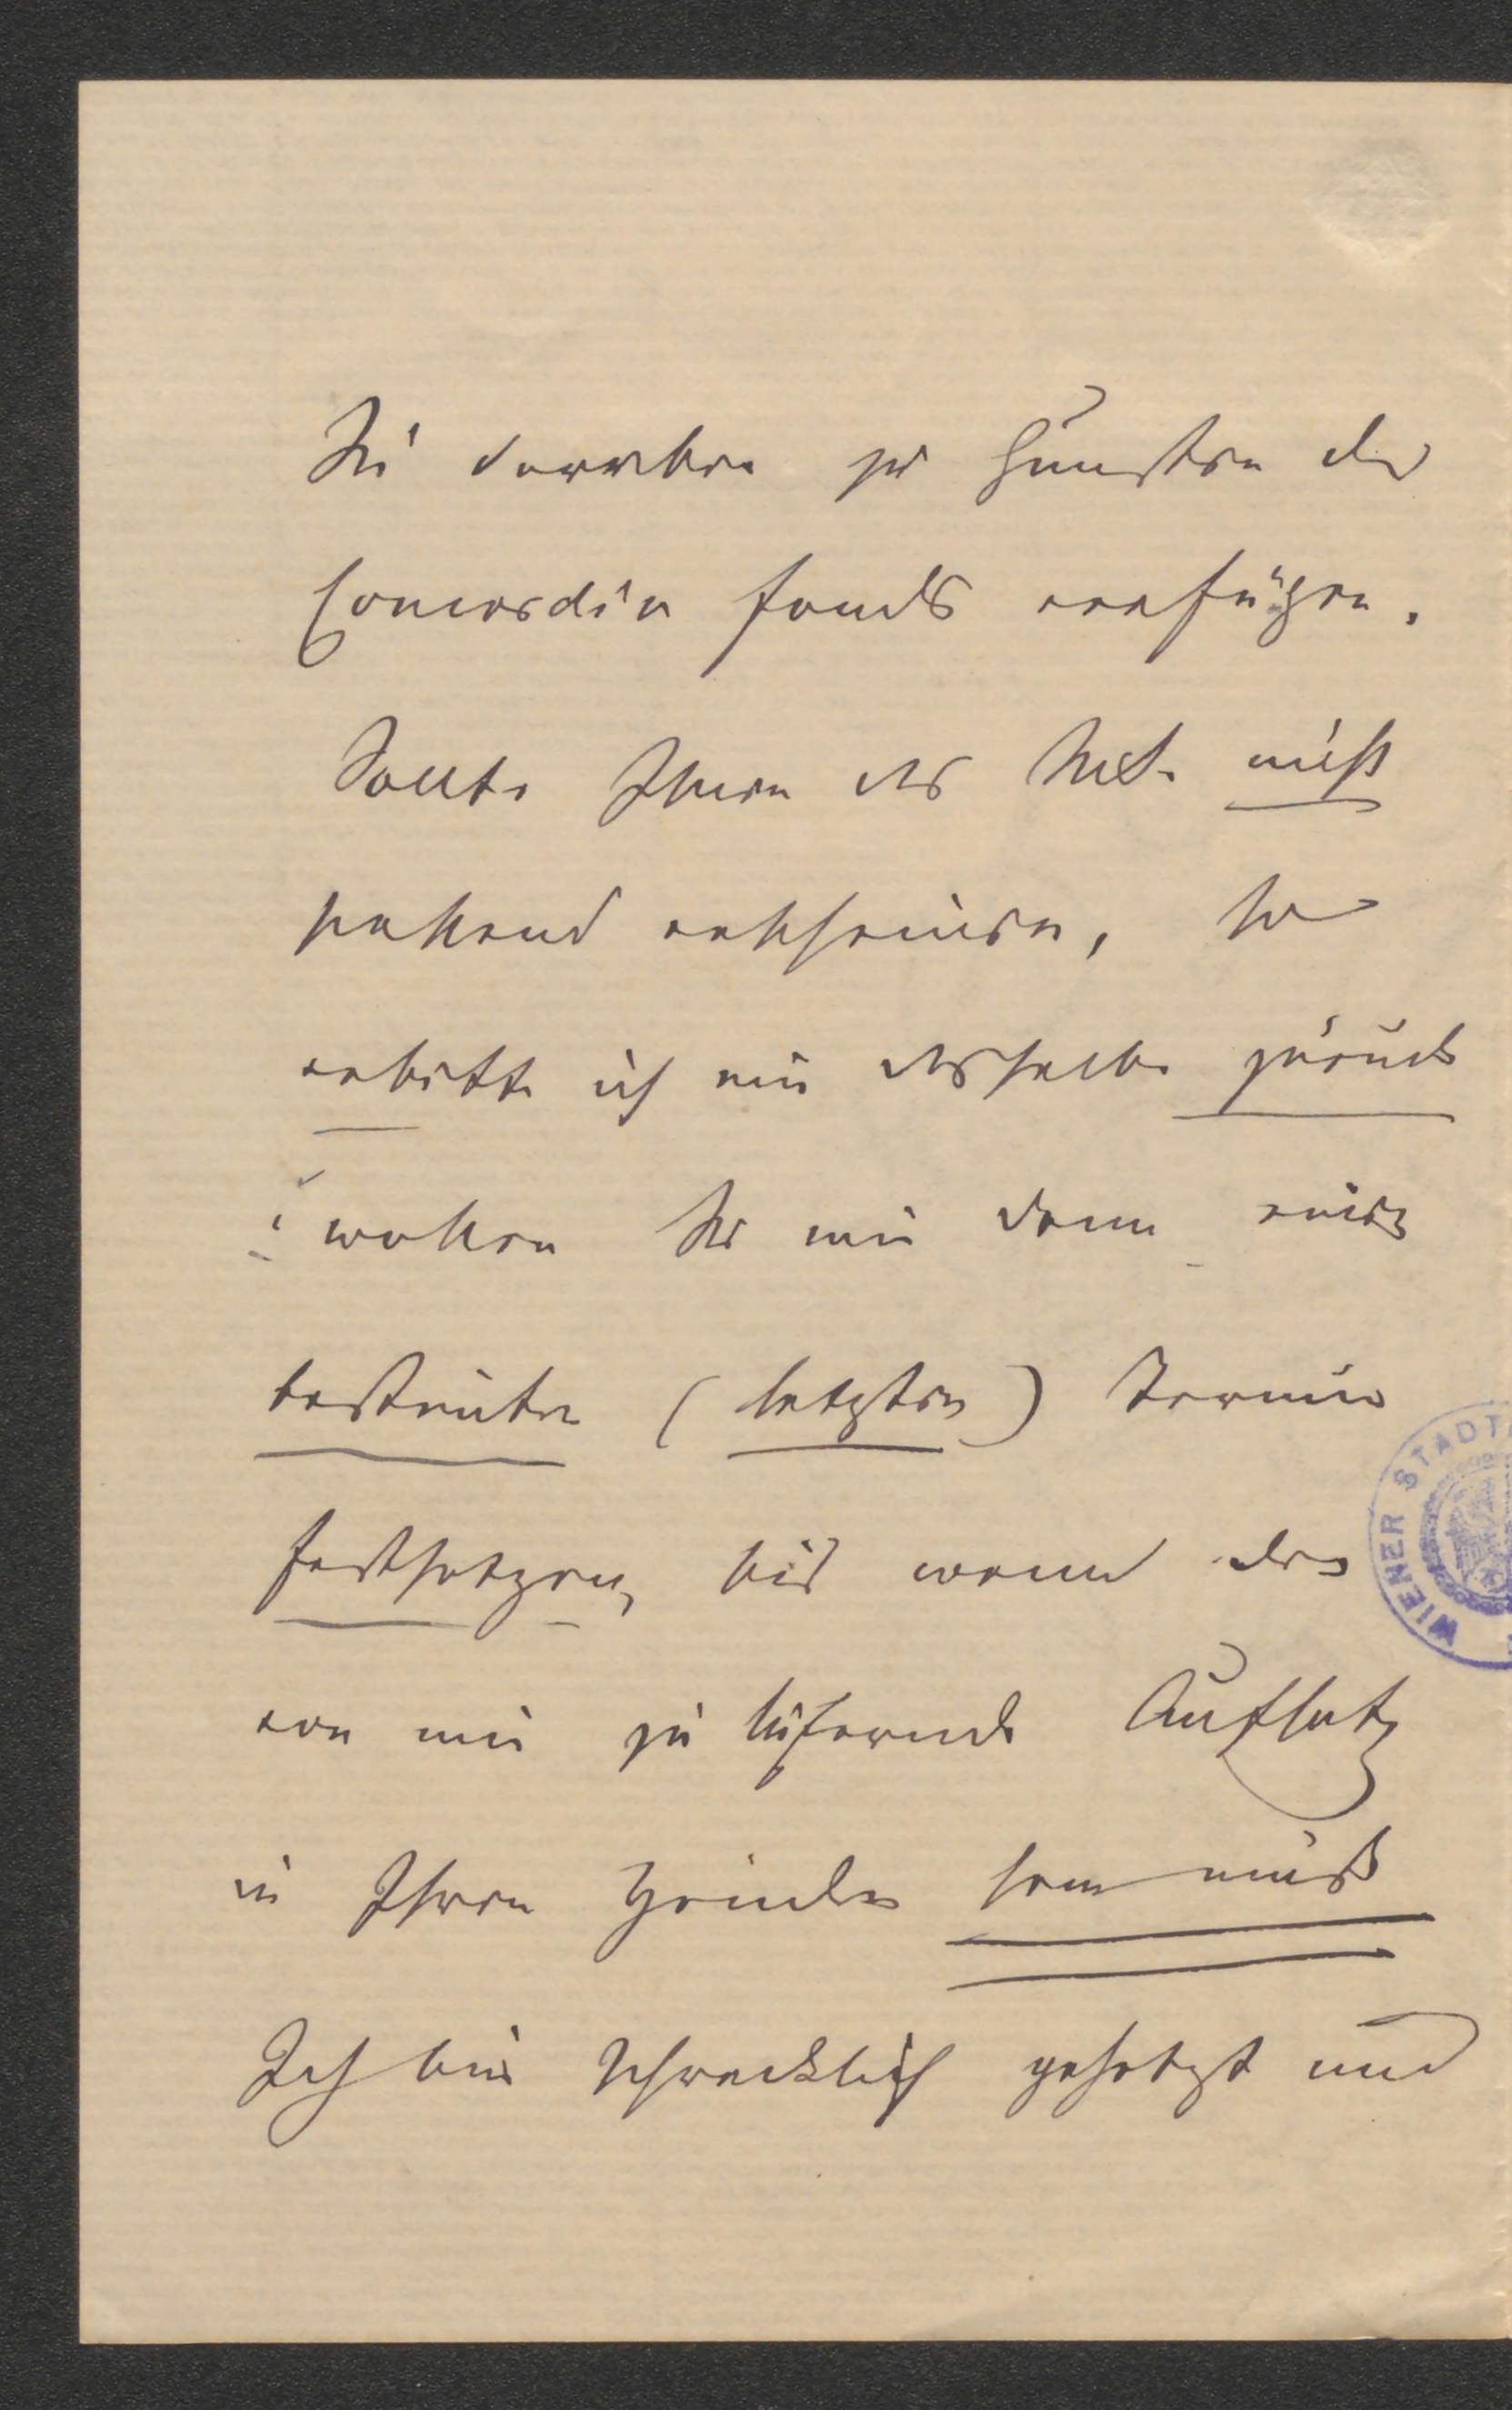 Sie darüber zu Gunsten des
Concordia fonds verfügen.
Sollte Ihnen das Mst. nicht
passend erscheinen, so
erbitte ich mir dasselbe zurück
wollen Sie mir dann einen
bestimten (letzten) Termin
festsetzen, bis wann der
von mir zu liefernde Aufsatz
in Ihren Händen sein muß
Ich bin schrecklich gehetzt und
WIENER STADT